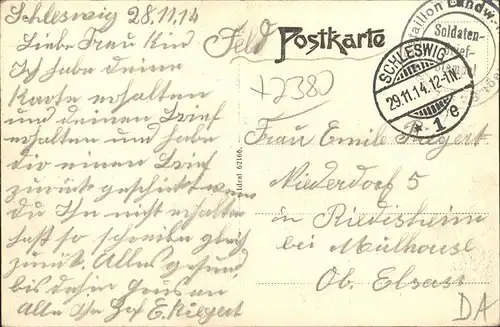 Schleswig 28.11.14
Liebe Frau und Kind
Ich habe deine
Karte erhalten
und deinen Brief
erhalten und habe
dir einen Brief
zurück geschickt wenn
du Ihn nicht erhalten
hast so schreibe gleich
zurück. Alles gesund
bis daher Grüs an
Alle E. Riegert
Feld Postkarte
+2380
Ideal 62166.
Bataillon Landw
Soldaten-
brief
SCHLESWIG
29.11.14.12-1N.
* 1 e
Frau Emile Riegert
Niederdorf 5
in Riedisheim
bei Mülhouse
Ob. Elsass
DA